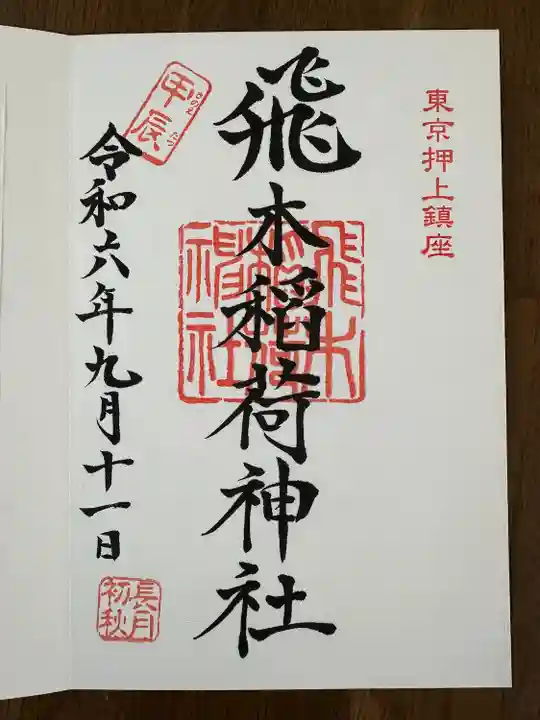 東京押上鎮座
飛木稲荷神社
飛木
稲荷
神社
甲辰
きのえ たつ
令和六年九月十一日
長月
初秋